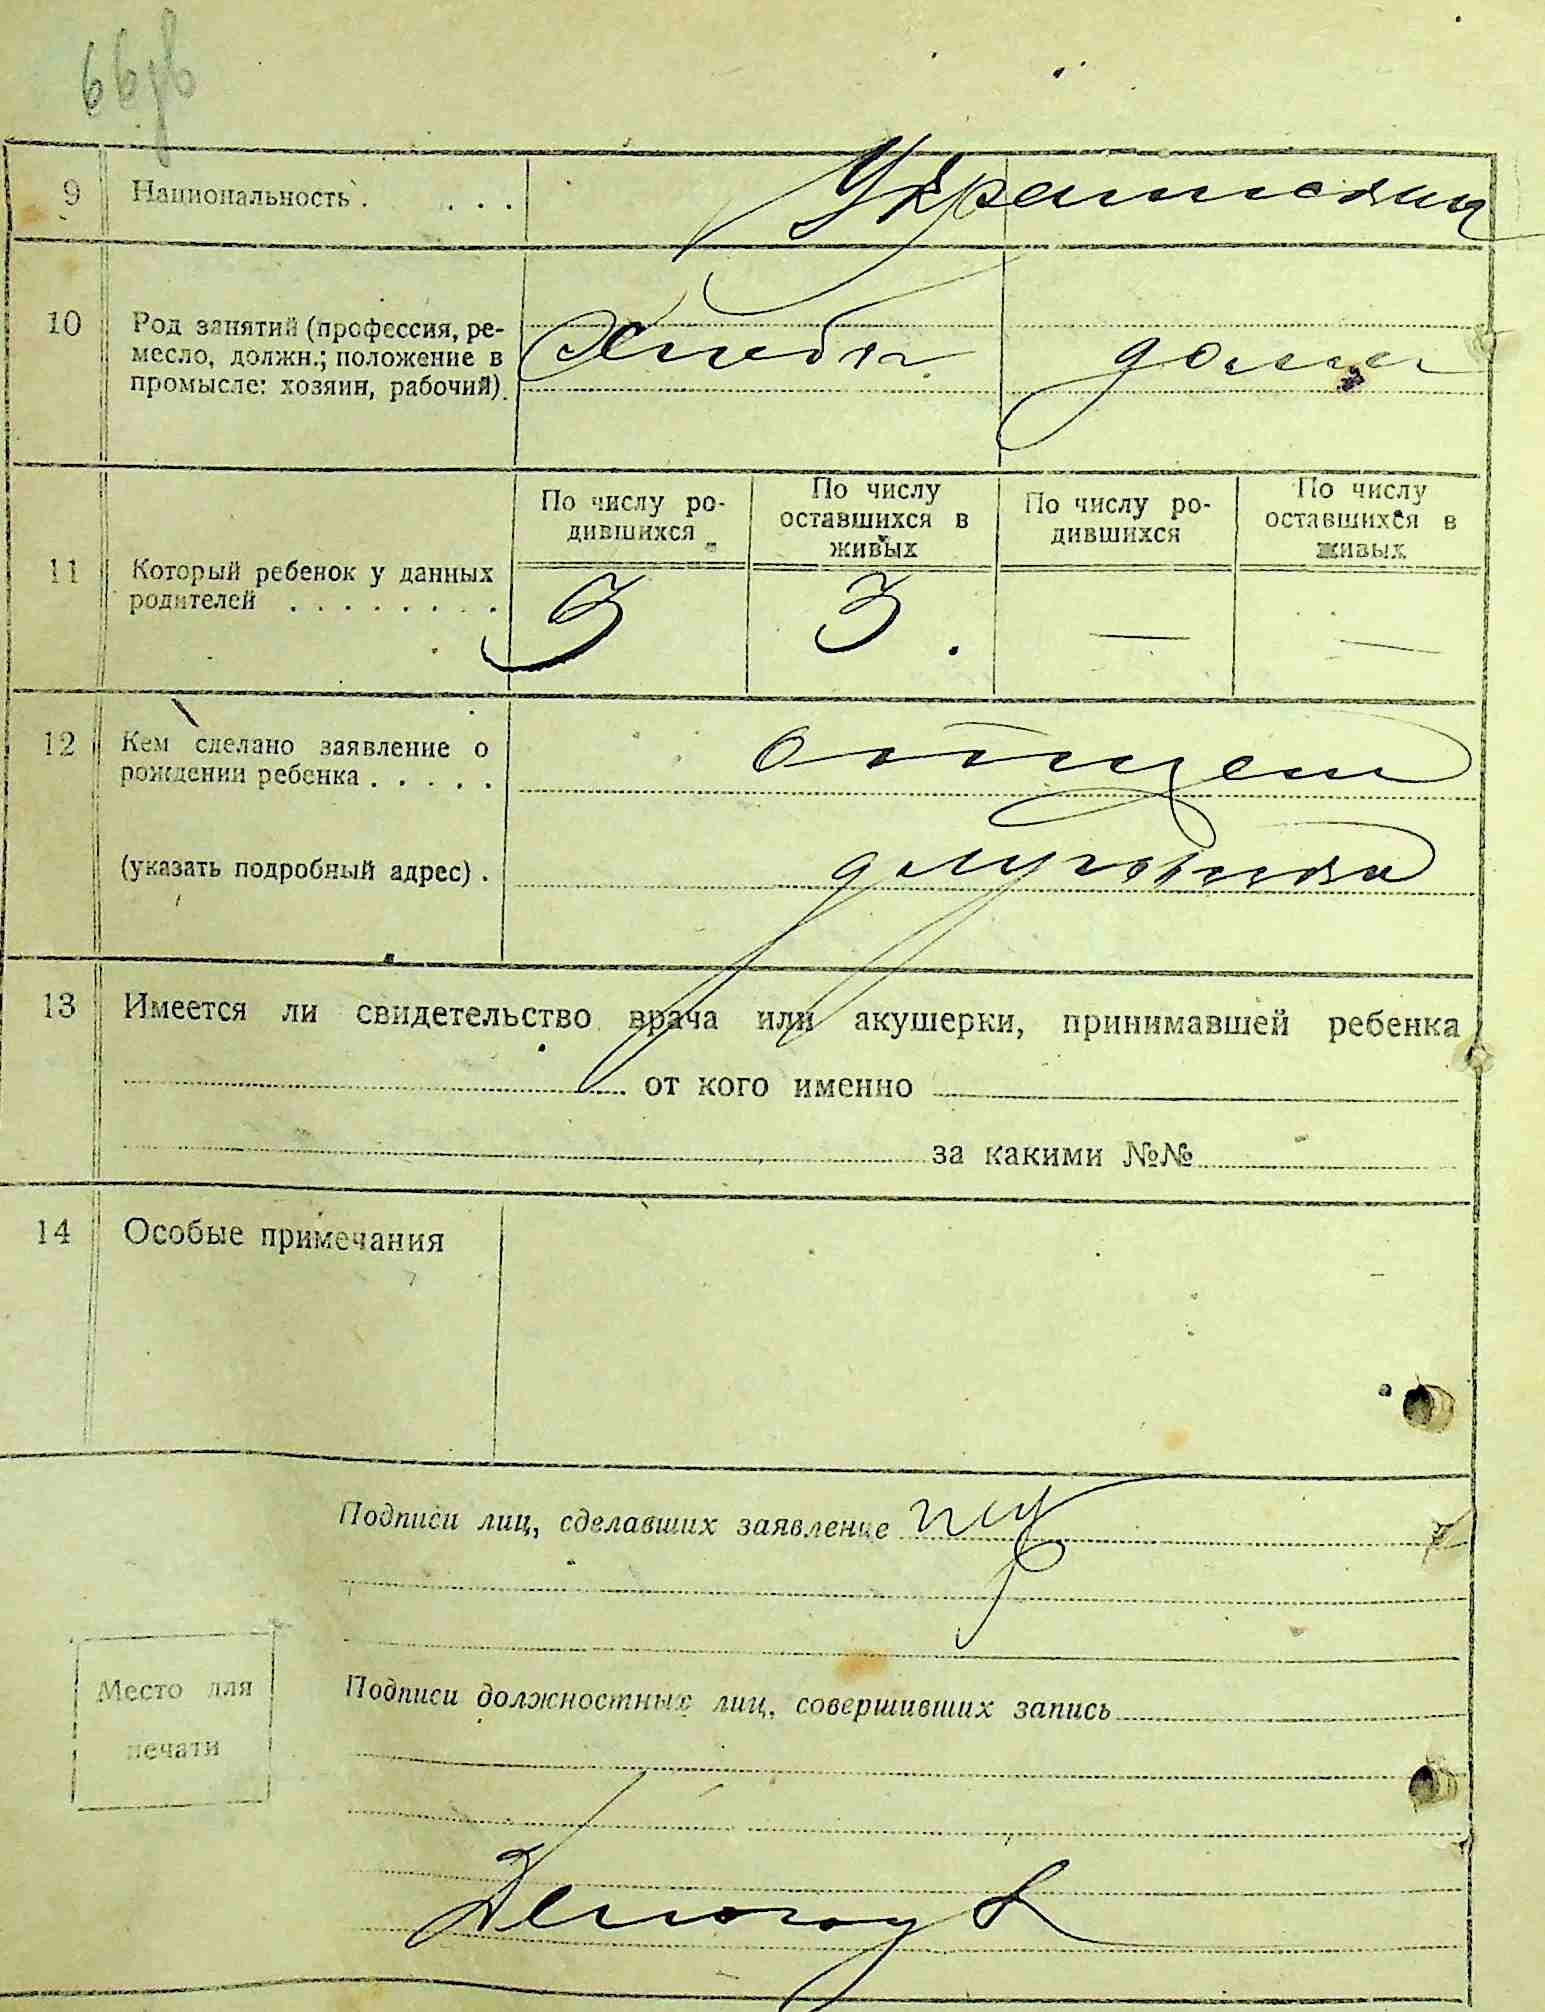 66об
9 Национальность . . . . Украинский
10 Род занятий (профессия, ре-
месло, должн.; положение в
промысле: хозяин, рабочий). дома
По числу ро-
дившихся
По числу
оставшихся в
живых
По числу ро-
дившихся
По числу
оставшихся в
живых
11 Который ребенок у данных
родителей . . . . . . . . 3 3. — —
12 Кем сделано заявление о
рождении ребенка . . . . . отцем
(указать подробный адрес) .
13 Имеется ли свидетельство врача или акушерки, принимавшей ребенка
от кого именно
за какими №№
14 Особые примечания
Подписи лиц, сделавших заявление
Место для
печати
Подписи должностных лиц, совершивших запись